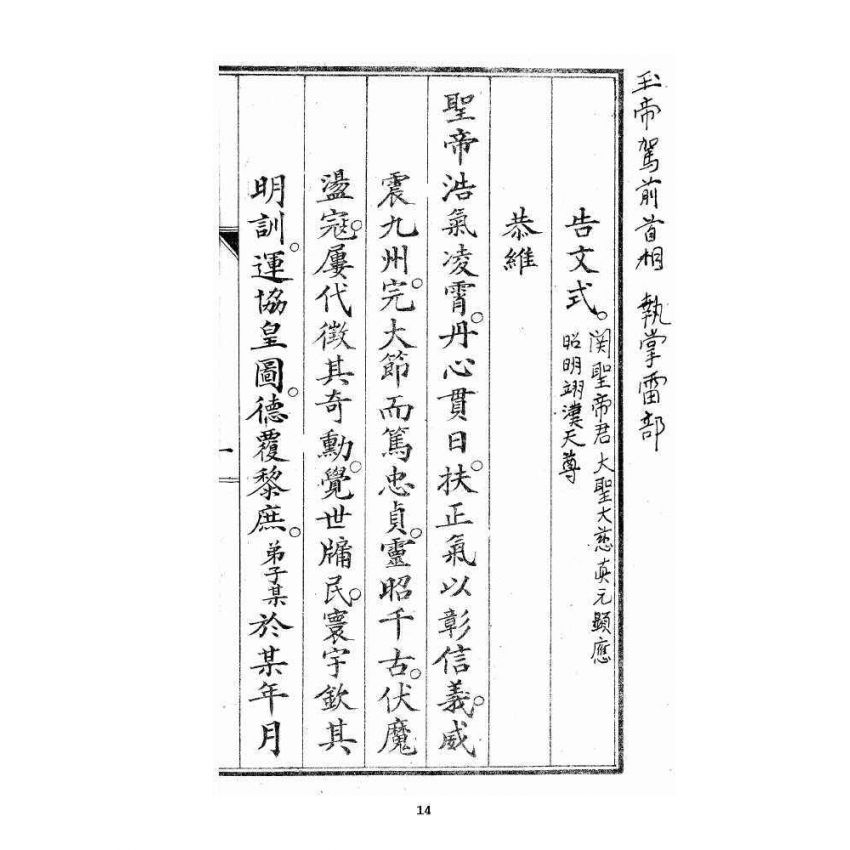 玉帝駕前首相 執掌雷部
告文式。関聖帝君大聖大慈真元顯應
昭明翊漢天尊
恭維
聖帝浩氣凌霄。丹心貫日。扶正氣以彰信義。威
震九州。完大節而篤忠貞。靈昭千古。伏魔
盪寇。屢代徵其奇勳。覺世牖民。寰宇欽其
明訓。運協皇圖。德覆黎庶。弟子某於某年月
14